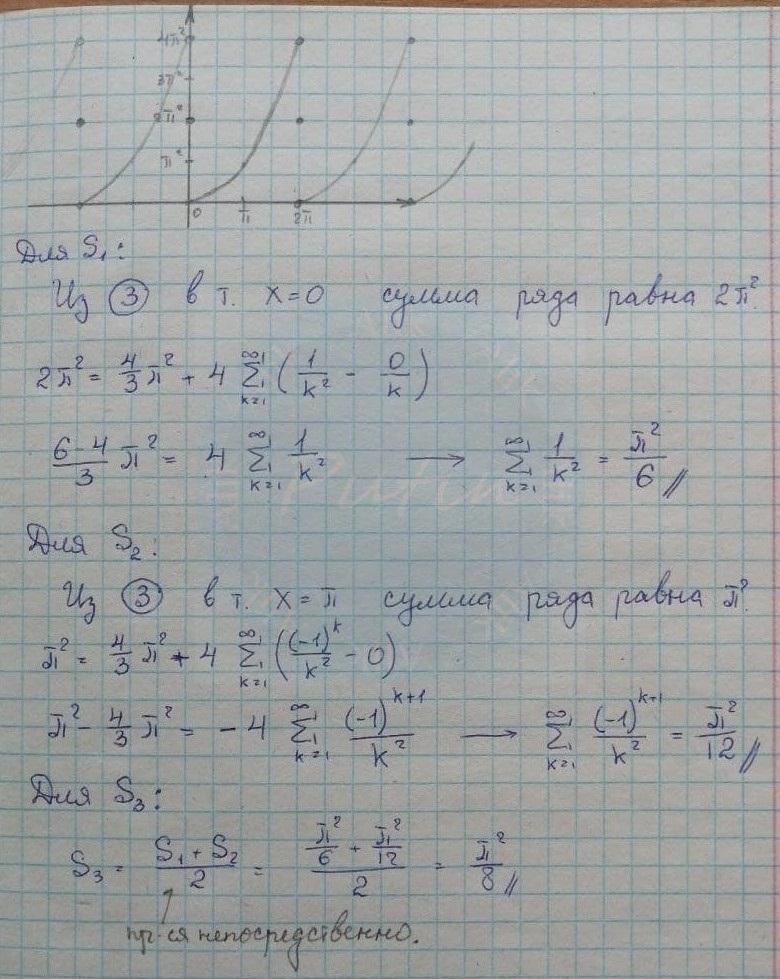 4π²
3π²
2π²
π²
0 π 2π
Для S₁:
Из ③ в т. x=0 сумма ряда равна 2π².
2π² = 4/3 π² + 4 ∑_{k=1}^{∞} (1/k² - 0/k)
(6-4)/3 π² = 4 ∑_{k=1}^{∞} 1/k² → ∑_{k=1}^{∞} 1/k² = π²/6 //
Для S₂:
Из ③ в т. x=π сумма ряда равна π².
π² = 4/3 π² + 4 ∑_{k=1}^{∞} ((-1)^k/k² - 0)
π² - 4/3 π² = -4 ∑_{k=1}^{∞} (-1)^{k+1}/k² → ∑_{k=1}^{∞} (-1)^{k+1}/k² = π²/12 //
Для S₃:
S₃ = (S₁ + S₂)/2 = (π²/6 + π²/12)/2 = π²/8 //
пр-ся непосредственно.